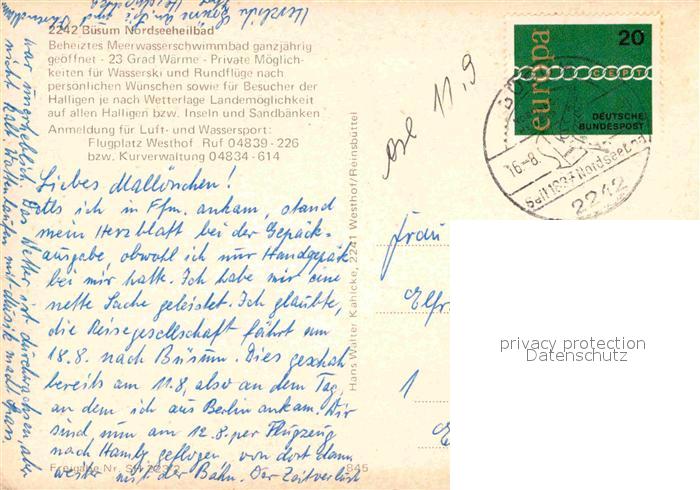 Herzliche
2242 Büsum Nordseeheilbad
Beheiztes Meerwasserschwimmbad ganzjährig
geöffnet - 23 Grad Wärme - Private Möglich-
keiten für Wasserski und Rundflüge nach
persönlichen Wünschen sowie für Besucher der
Halligen je nach Wetterlage Landemöglichkeit
auf allen Halligen bzw. Inseln und Sandbänken
Anmeldung für Luft- und Wassersport:
Flugplatz Westhof Ruf 04839 - 226
bzw. Kurverwaltung 04834 - 614
Liebes Mallörschen!
Als ich in Ffm. ankam, stand
mein Herzblatt bei der Gepäck-
ausgabe, obwohl ich nur Handgepäk
bei mir hatte. Ich habe mir eine
nette Sache geleistet. Ich glaubte,
die Reisegesellschaft fährt am
18.8. nach Büsum. Dies geschah
bereits am 11.8, also an dem Tag,
an dem ich aus Berlin ankam. Wir
sind nun am 12.8. per Flugzeug
nach Hambg geflogen von dort dann
weiter mit der Bahn. Der Zeitverlust
war unerheblich. Das Wetter ist durchwachsen aber
nicht kalt. Wattenlaufen mit Musik macht Spass
Freigabe Nr. SH 203/2
845
Hans Walter Kahlcke, 2241 Westhof/Reinsbüttel
11,9
europa
20
CEPT
DEUTSCHE
BUNDESPOST
16.-8.
Seit 1837 Nordseebad
2242
Frau
Elfr
1
privacy protection
Datenschutz